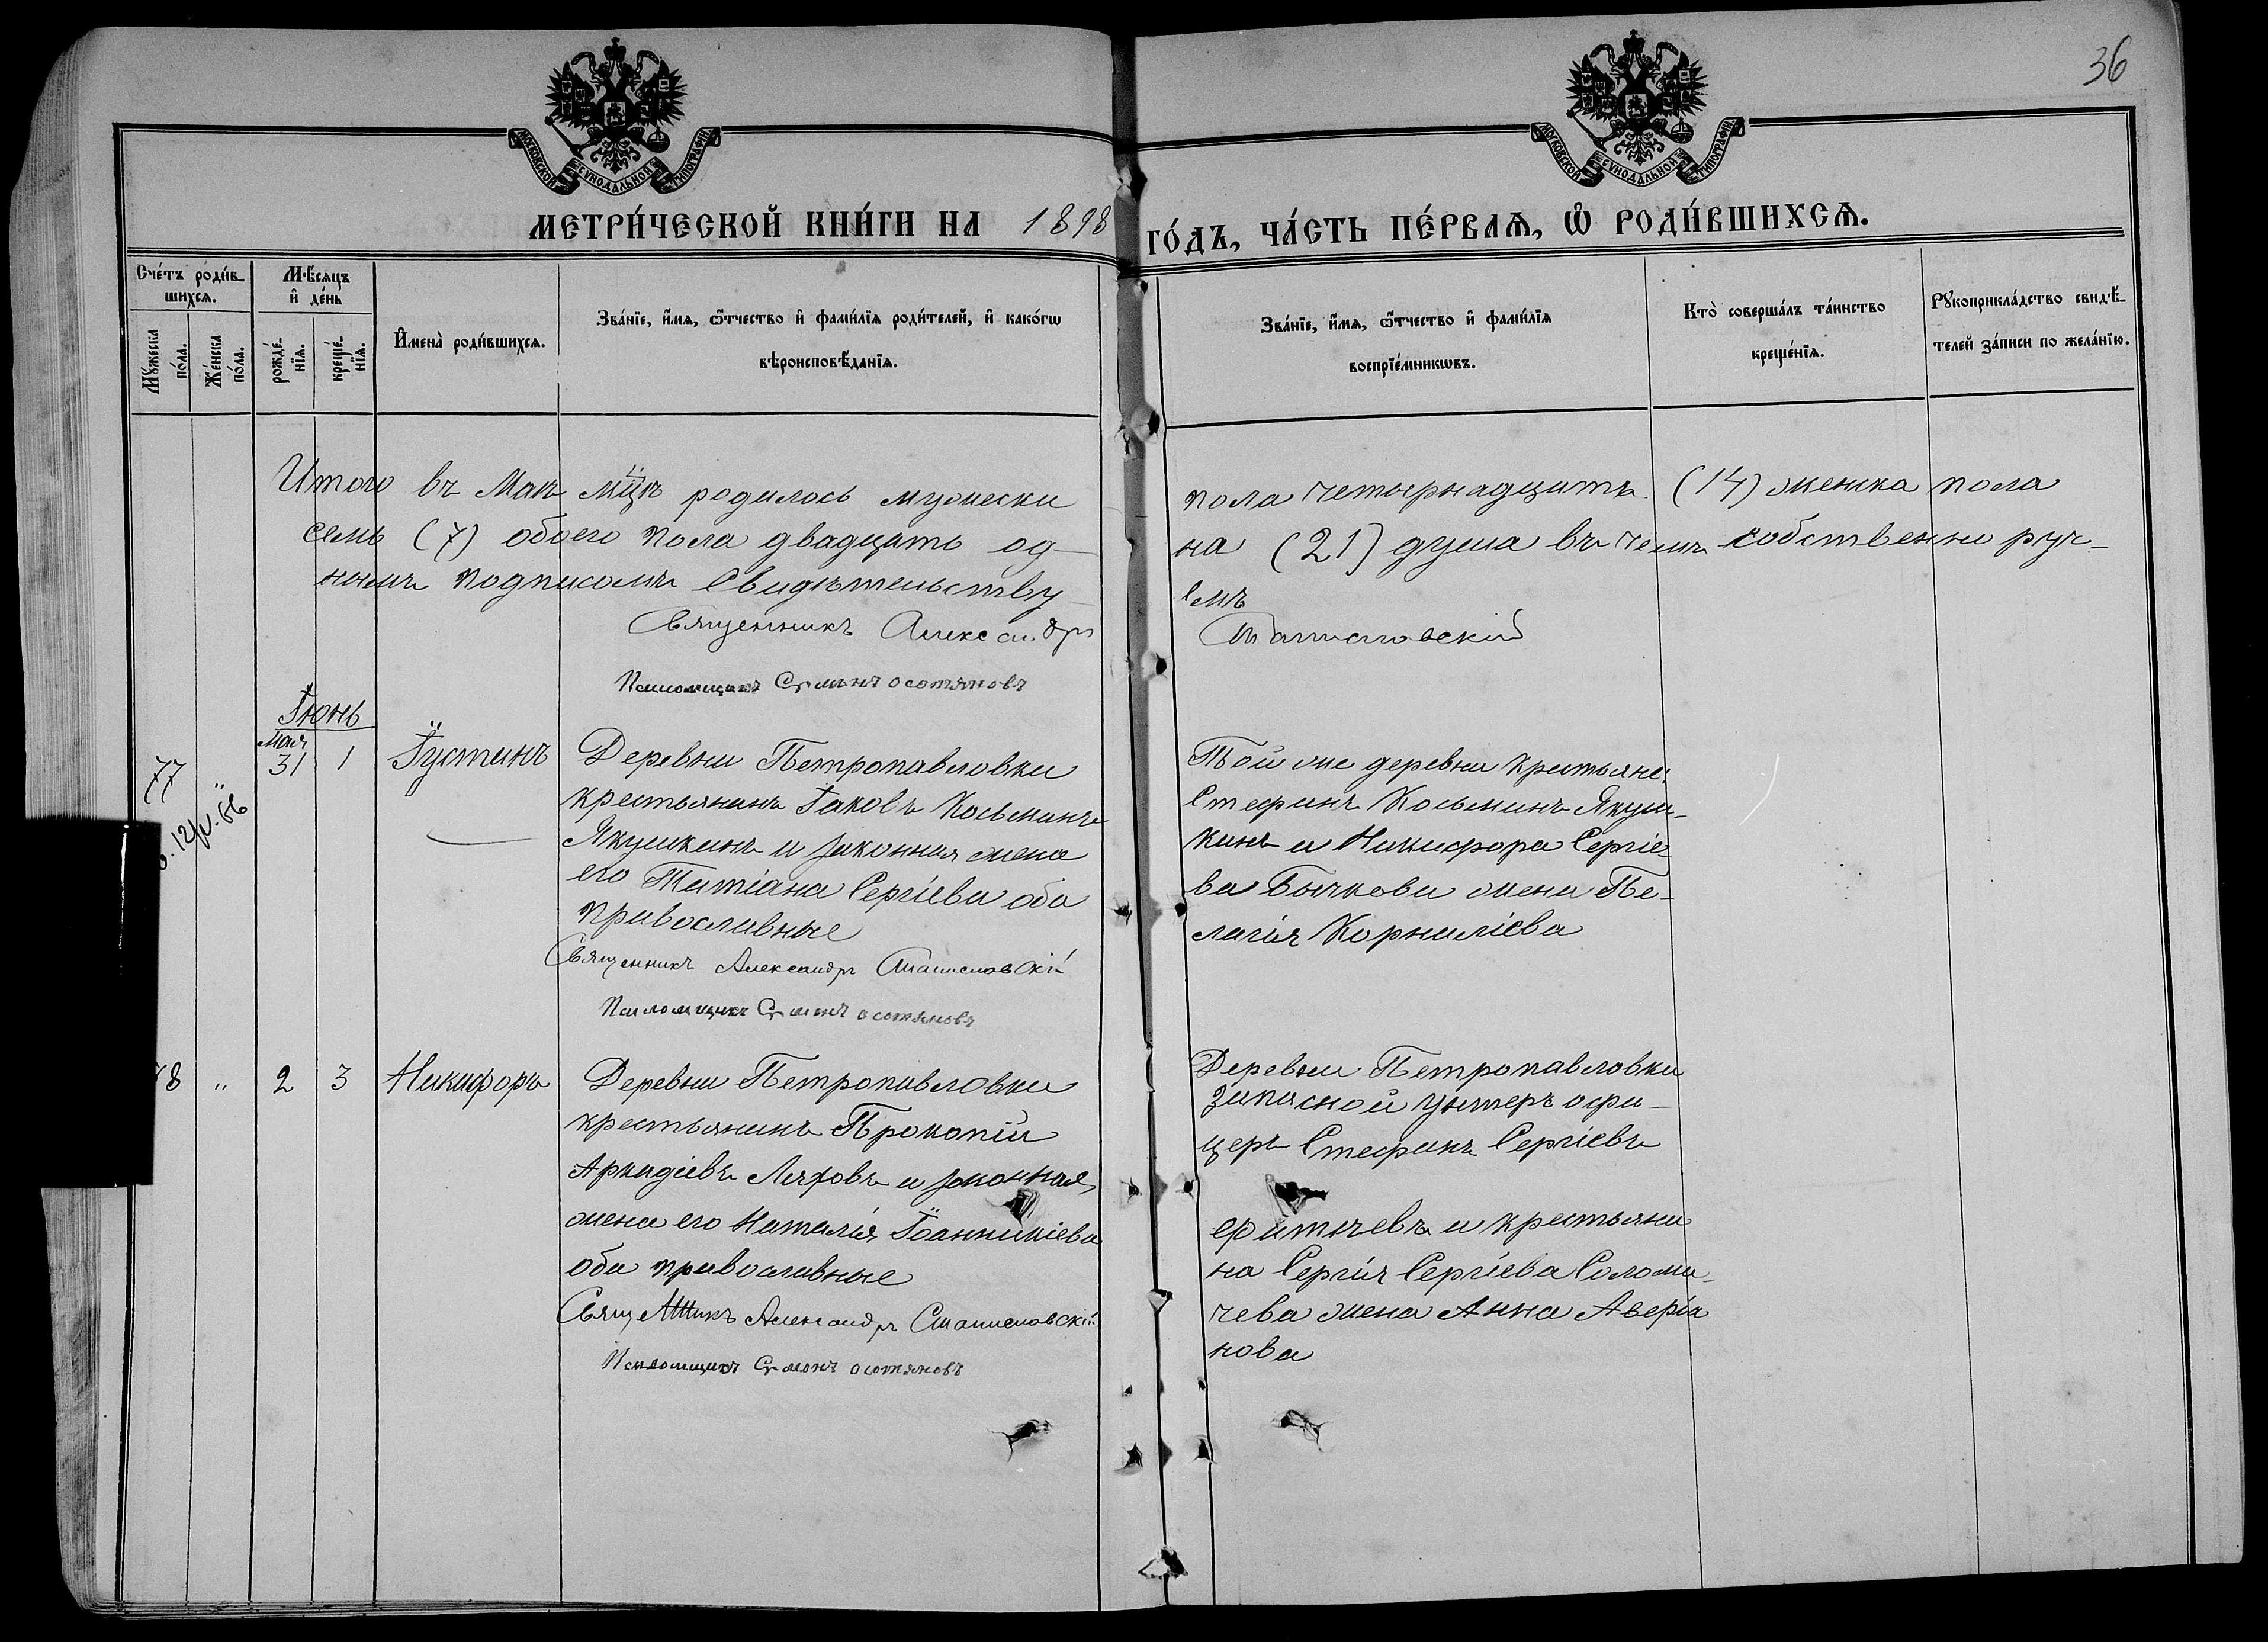 36
МОСКОВСКОЙ СѴНОДАЛЬНОЙ ТИПОГРАФІИ
МОСКОВСКОЙ СѴНОДАЛЬНОЙ ТИПОГРАФІИ
МЕТРИ́ЧЕСКОЙ КНИ́ГИ НА 1898 ГО́ДЪ, ЧА́СТЬ ПЕ́РВАѦ, Ѡ҆ РОДИ́ВШИХСѦ.
Сче́тъ роди́в-
шихсѧ.
Му́жеска
по́ла.
Же́нска
по́ла.
Мѣ́сяцъ
и҆ де́нь
рожде́-
нїѧ.
креще́-
нїѧ.
И҆мена̀ роди́вшихсѧ.
Зва́нїе, и҆́мѧ, ѻ҆́тчество и҆ фами́лїѧ роди́телей, и҆ како́гѡ
вѣроисповѣ́данїѧ.
Зва́нїе, и҆́мѧ, ѻ҆́тчество и҆ фами́лїѧ
воспрїе́мникѡвъ.
Кто̀ соверша́лъ та́инство
креще́нїѧ.
Рꙋкоприкла́дство свидѣ́-
телей за́писи по жела́нїю.
Итого въ Маѣ мцѣ родилось мужеска пола четырнадцать (14) женска пола
семь (7) обоего пола двадцать од- на (21) душа въ чемъ собственно руч-
нымъ подписомъ свидѣтельству- емъ
Священникъ Александръ Станиславскій
Псаломщикъ Сѵмонъ Осотяновъ
Іюнь
77 "
мая
31 1 Іустинъ
Деревни Петропавловки
крестьянинъ Іаковъ Косьминъ
Якушкинъ и законная жена
его Татіана Сергіева оба
православные
Священникъ Александръ Станиславскій
Псаломщикъ Сѵмонъ Осотяновъ
Той же деревни крестьяне
Стефанъ Косьминъ Якуш-
кинъ и Никифора Сергіе-
ва Бычкова жена Пе-
лагія Корниліева
78 " 2 3 Никифоръ
Деревни Петропавловки
крестьянинъ Прокопій
Аркадіевъ Ляховъ и законная
жена его Наталія Іоанникіева
оба православные
Священникъ Александръ Станиславскій
Псаломщикъ Сѵмонъ Осотяновъ
Деревни Петропавловки
запасной унтеръ офи-
церъ Стефанъ Сергіевъ
и крестьяни
на Сергія Сергіева Соломи-
чева жена Анна Аверіа
нова